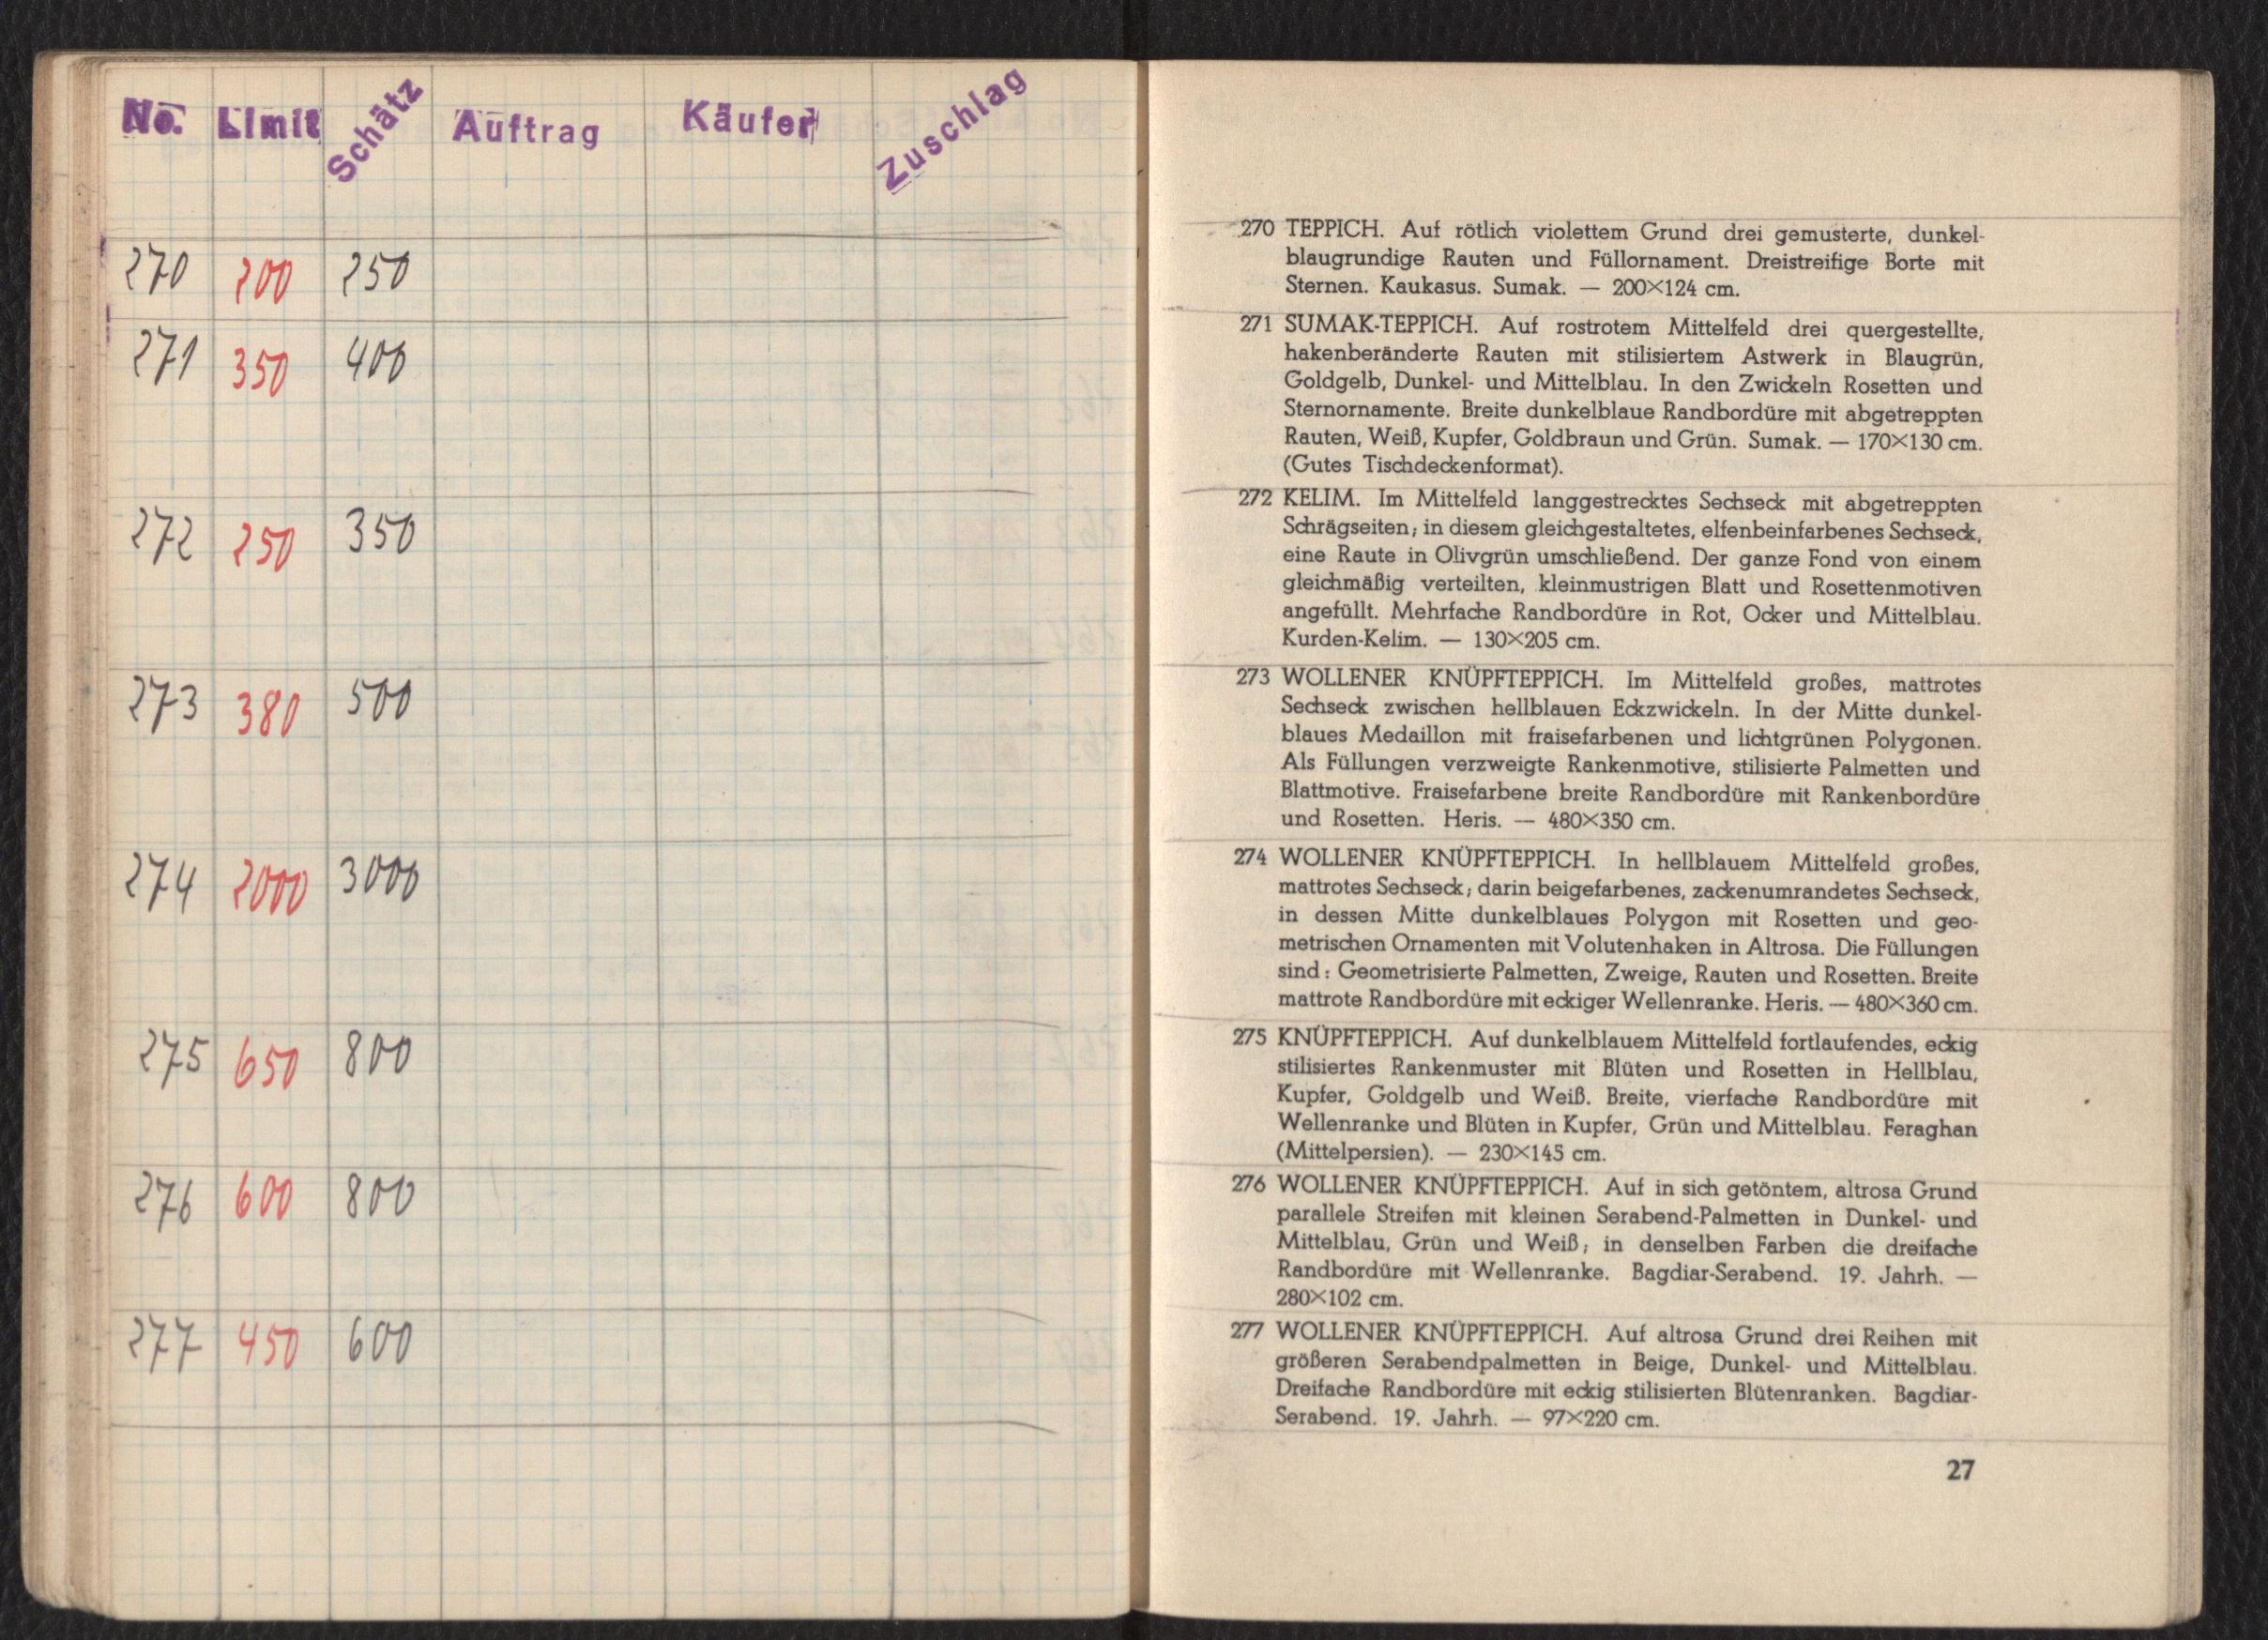 No. Limit Schätz Auftrag Käufer Zuschlag
270 200 250
271 350 400
272 250 350
273 380 500
274 2000 3000
275 650 800
276 600 800
277 450 600
270 TEPPICH. Auf rötlich violettem Grund drei gemusterte, dunkel-
blaugrundige Rauten und Füllornament. Dreistreifige Borte mit
Sternen. Kaukasus. Sumak. — 200×124 cm.
271 SUMAK-TEPPICH. Auf rostrotem Mittelfeld drei quergestellte,
hakenberänderte Rauten mit stilisiertem Astwerk in Blaugrün,
Goldgelb, Dunkel- und Mittelblau. In den Zwickeln Rosetten und
Sternornamente. Breite dunkelblaue Randbordüre mit abgetreppten
Rauten, Weiß, Kupfer, Goldbraun und Grün. Sumak. — 170×130 cm.
(Gutes Tischdeckenformat).
272 KELIM. Im Mittelfeld langgestrecktes Sechseck mit abgetreppten
Schrägseiten; in diesem gleichgestaltetes, elfenbeinfarbenes Sechseck,
eine Raute in Olivgrün umschließend. Der ganze Fond von einem
gleichmäßig verteilten, kleinmustrigen Blatt und Rosettenmotiven
angefüllt. Mehrfache Randbordüre in Rot, Ocker und Mittelblau.
Kurden-Kelim. — 130×205 cm.
273 WOLLENER KNÜPFTEPPICH. Im Mittelfeld großes, mattrotes
Sechseck zwischen hellblauen Eckzwickeln. In der Mitte dunkel-
blaues Medaillon mit fraisefarbenen und lichtgrünen Polygonen.
Als Füllungen verzweigte Rankenmotive, stilisierte Palmetten und
Blattmotive. Fraisefarbene breite Randbordüre mit Rankenbordüre
und Rosetten. Heris. — 480×350 cm.
274 WOLLENER KNÜPFTEPPICH. In hellblauem Mittelfeld großes,
mattrotes Sechseck; darin beigefarbenes, zackenumrandetes Sechseck,
in dessen Mitte dunkelblaues Polygon mit Rosetten und geo-
metrischen Ornamenten mit Volutenhaken in Altrosa. Die Füllungen
sind: Geometrisierte Palmetten, Zweige, Rauten und Rosetten. Breite
mattrote Randbordüre mit eckiger Wellenranke. Heris. — 480×360 cm.
275 KNÜPFTEPPICH. Auf dunkelblauem Mittelfeld fortlaufendes, eckig
stilisiertes Rankenmuster mit Blüten und Rosetten in Hellblau,
Kupfer, Goldgelb und Weiß. Breite, vierfache Randbordüre mit
Wellenranke und Blüten in Kupfer, Grün und Mittelblau. Feraghan
(Mittelpersien). — 230×145 cm.
276 WOLLENER KNÜPFTEPPICH. Auf in sich getöntem, altrosa Grund
parallele Streifen mit kleinen Serabend-Palmetten in Dunkel- und
Mittelblau, Grün und Weiß; in denselben Farben die dreifache
Randbordüre mit Wellenranke. Bagdiar-Serabend. 19. Jahrh. —
280×102 cm.
277 WOLLENER KNÜPFTEPPICH. Auf altrosa Grund drei Reihen mit
größeren Serabendpalmetten in Beige, Dunkel- und Mittelblau.
Dreifache Randbordüre mit eckig stilisierten Blütenranken. Bagdiar-
Serabend. 19. Jahrh. — 97×220 cm.
27